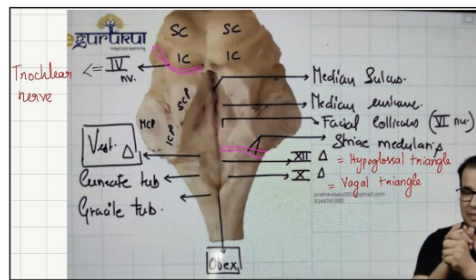 eGurukul
SC SC
IC IC
Trochlear
nerve
<= IV
nv.
SCP
MCP
ICP
Vest. Δ
Cuneate tub
Gracile tub.
Obex
Median Sulcus
Median eminence
Facial colliculus (VI nu.)
Striae medullaris
XII Δ = Hypoglossal triangle
X Δ = Vagal triangle
9344741660